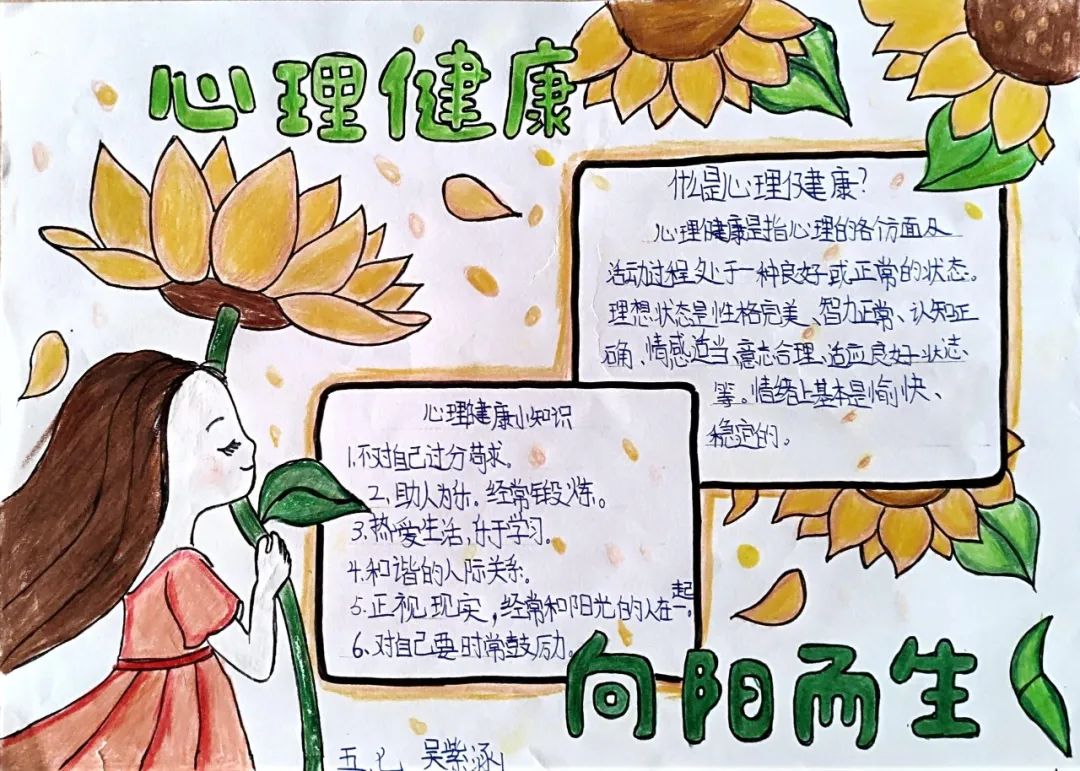 心理健康
什么是心理健康?
心理健康是指心理的各个方面及
活动过程处于一种良好或正常的状态。
理想状态是性格完美、智力正常、认知正
确、情感适当、意志合理、适应良好状态、
等。情绪上基本是愉快、
稳定的。
心理健康小知识
1.不对自己过分苛求。
2、助人为乐。经常锻炼。
3、热爱生活,乐于学习。
4.和谐的人际关系。
5、正视现实,经常和阳光的人在一起。
6、对自己要时常鼓励。
向阳而生
五、七 吴紫涵